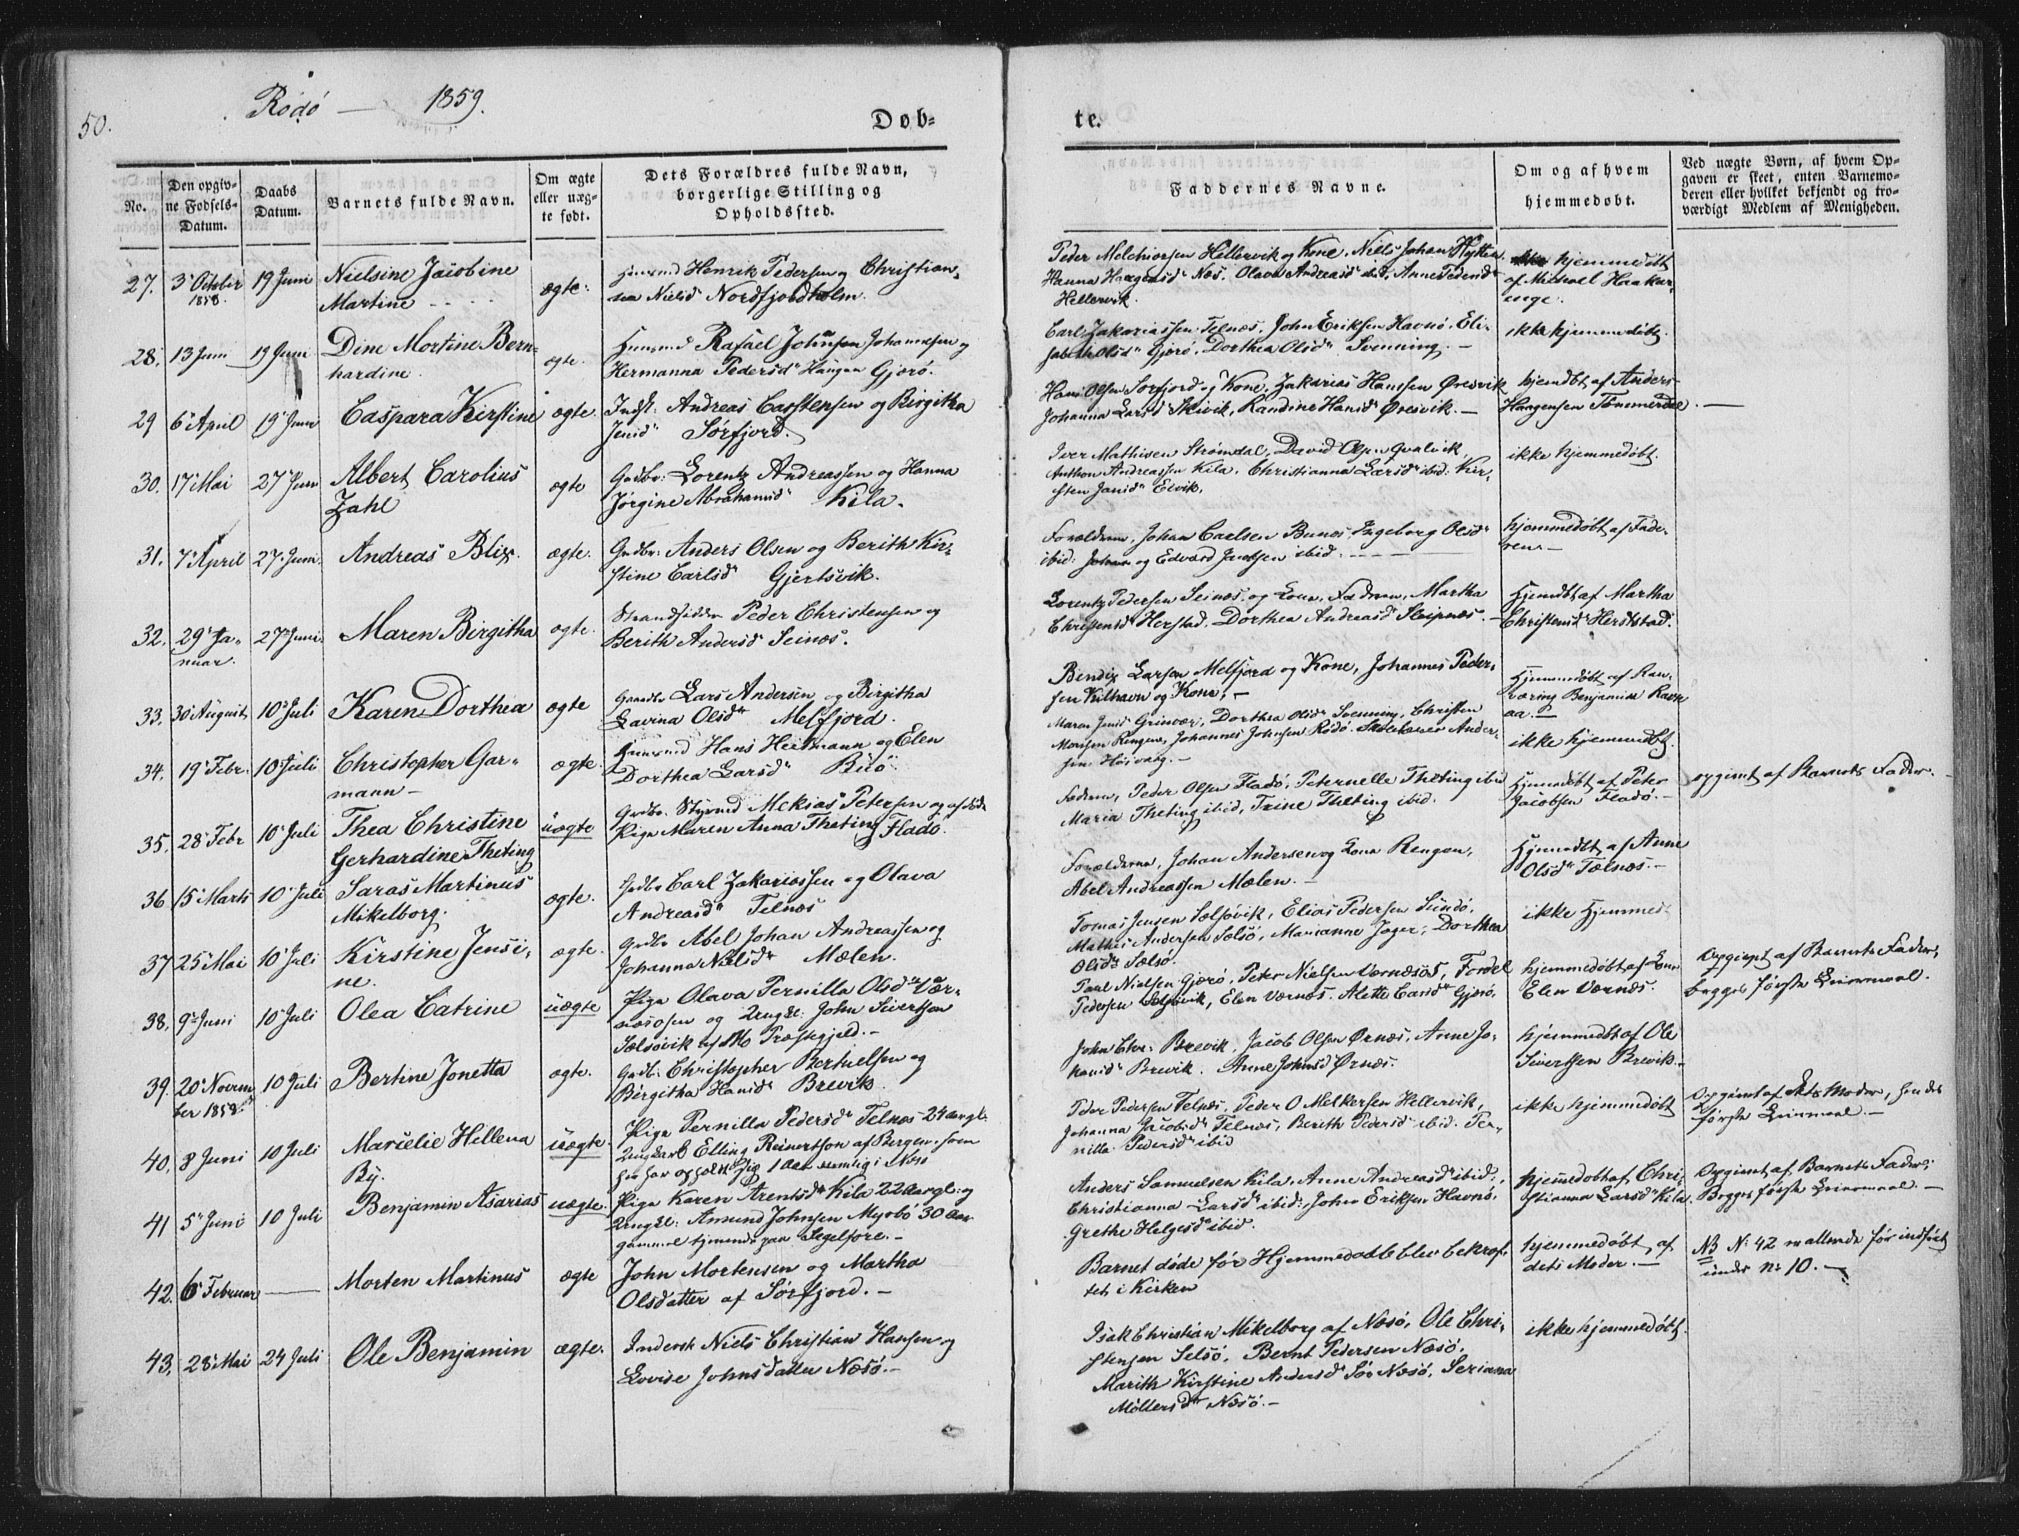 50.
Rødø — 1859.
Døb-
te.
No.
Den opgiv-
ne Fødsels-
Datum.
Daabs
Datum.
Barnets fulde Navn.
Om ægte
eller uæg-
te født.
Dets Forældres fulde Navn,
borgerlige Stilling og
Opholdssted.
Faddernes Navne.
Om og af hvem
hjemmedøbt.
Ved uægte Børn, af hvem Op-
gaven er skeet, enten Barnemo-
deren eller hvilket bekjendt og tro-
værdigt Medlem af Menigheden.
27. 3 October 19 Juni Nielsine Jacobine ægte. Huusmd Henrik Pedersen og Christian-
1858. Martine nea Nielsd Nordfjordholm.
Peder Melchiorsen Hellervik og Kone, Niels Johan
Hanna Haagensd Næs, Olava Andreasd ibid, Anne Pedersd
Hellervik.
hjemmedøbt
af Michael Haakon-
28. 13 Juni 19 Juni Dine Mortine Bern- ægte. Huusmd Rafael Johnsen Johannesen og
hardine. Hermanna Pedersd Haugen Gjerø.
Carl Zakariassen Telnæs, John Eriksen Havnø, Eli-
sabeth Olsd Gjerø, Dorthea Olsd Svenning. —
ikke hjemmedøbt.
29 6 April 19 Juni Caspara Kirstine ægte. Indst: Andreas Carstensen og Birgitha
Jensd Sørfjord.
Hans Olsen Sørfjord og Kone, Zakarias Hansen Øresvik
Johanna Larsd Skivik, Randine Hansd Øresvik. —
hjemdbt af Anders
Haagensen Tømmerdal. —
30. 17 Mai 27 Juni Albert Carolius ægte Grdbr: Lorentz Andreassen og Hanna
Zahl Jørgine Abrahamsd Kila.
Iver Mathisen Strømdal, David Olsen Qvalvik,
Anthon Andreassen Kila, Christianna Larsd ibid: Kir-
sten Jansd Elvik.
ikke hjemmedøbt.
31. 7 April 27 Juni. Andreas Blix. ægte. Grdbr: Anders Olsen og Berith Kir-
stine Carlsd Gjertsvik.
Forældrene, Johan Carlsen Bunes Ingeborg Olsd
ibid: Johan og Edvard Jacobsen ibid.
hjemmedøbt af Fade-
ren. —
32. 29 Ja- 27 Juni. Maren Birgitha ægte. Strandsidder Peder Christensen og
nuar. Berith Andersd Seinæs.
Lorentz Pedersen Seinæs og Kone, Faderen, Martha
Christensd Herstad, Dorthea Andreasd Sleipnes. —
Hjemdbt af Martha
Christensd Herststad.
33. 30 August 10 Juli Karen Dorthea ægte Gaardbr Lars Andersen og Birgitha
Lavina Olsd Melfjord.
Bendix Larsen Melfjord og Kone, Johannes Peder-
sen Kilhavn og Kone, —
Hjemmedøbt af Ran-
væring Benjaminsd Ravn
aa. —
34. 19 Febr. 10 Juli Christopher Gar- ægte. Huusmd Hans Heitmann og Elen
mann — Dorthea Larsd Risø.
Maren Jensd Grinvær, Dorthea Olsd Svenning, Christen
Monsen Rengen, Johannes Johnsen Rødø. Skolelærer Ander-
sen Høivaag. —
ikke hjemmedbt.
35. 28 Febr 10 Juli Thea Christine uægte Grdbr. Styrmd Mekias Petersen og afdøde
Gerhardine Theting Pige Maren Anna Theting Fladø.
Faderen, Peder Olsen Fladø, Peternelle Theting ibid
Maria Theting ibid, Trine Theting ibid.
Hjemedøbt af Peter
Jacobsen Fladø. —
opgivet af Barnets Fader. —
36 15 Marts 10 Juli Saras Martinus ægte. Grdbr Carl Zakariassen og Olava
Mikelborg. Andreasd Telnæs
Forældrene, Johan Andersen og Kone Rengen,
Abel Andreassen Mælen. —
Hjemmedbt af Anne
Olsd Tælnæs. —
37 25 Mai 10 Juli Kirstine Jensi- ægte. Grdbr Abel Johan Andreassen og
ne. Johanna Nielsd Mælen.
Tomas Jensen Sælsøvik, Elias Pedersen Sundø,
Mathis Andersen Sælsø, Marianne Jager, Dorthea
Olsd Sælsø.
ikke Hjemmed:
38. 9 Juni 10 Juli Olea Catrine uægte Pige Olava Pernilla Olsd Vær-
næsosen og Ungkl: John Sivertsen
Sælsøvik af Mo Præstgjeld. —
Paul Nielsen Gjerø, Peter Nielsen Værnæsos, Fordel
Pedersen Selsøvik, Elen Værnæs, Alette Carsd Gjerø.
hjemmedøbt af Kone
Elen Værnæs.
Opgivet af Barnets Fader,
begges første Leiermaal.
39. 20 Novem- 10 Juli Bertine Jonetta ægte. Grdb: Christopher Berthelsen og
ber 1858 Birgitha Hansd Brevik.
John Chr: Brevik, Jacob Olsen Ørnæs, Anne Jo-
hansd Brevik. Anne Johnsd Ørnæs.
hjemmedbt af Ole
Sivertsen Brevik —
40. 8 Juni 10 Juli Marcelie Hellena uægte. Pige Pernilla Pedersd Telnæs 24 aar gl.
By. Ungkarl Elling Reinertson af Bergen, som
her har opholdt sig 1 Aar nemlig i Næs
Peder Pedersen Telnæs, Peder O Melkersen Hellervik,
Johanna Jacobsd Telnæs, Berith Pedersd ibid. Per-
nille Pedersd ibid
ikke hjemmedøbt
Opgivet af dets Moder, hendes
første Leiermaal. —
41 5 Juni 10 Juli Benjamin Asarias uægte. Pige Karen Arentsd Kila 22 Aar gl: og
Ungkl: Amund Johnsen Myrbø 30 Aar
gammel tjenende paa Segelfore. —
Anders Samuelsen Kila, Anne Andreasd ibid:,
Christianna Larsd ibid:, John Eriksen Havnø.
Grethe Helgesd ibid.
hjemedøbt af Chri-
stianna Larsd Kila.
Opgivet af Barnets Fader,
Begges første Leiermaal. —
42. 6 Februar — Morten Martinus ægte John Mortensen og Martha
Olsdatter af Sørfjord. —
Barnet døde før Hjemmedaaben blev bekræf-
tet i Kirken
hjemmedøbt af
dets Moder. —
NB No 42 er allerede før indført
under No 10. —
43. 28 Mai 24 Juli Ole Benjamin ægte. Inderst Niels Christian Hansen og
Lovise Johnsdatter Næsø. —
Isak Christian Mikelborg af Næsø, Ole Chri-
stensen Selsø, Bernt Pedersen Næsø,
Marith Kirstine Andersd Sør Næsø, Seriana
Møllersd Næsø. —
ikke hjemmedøbt.